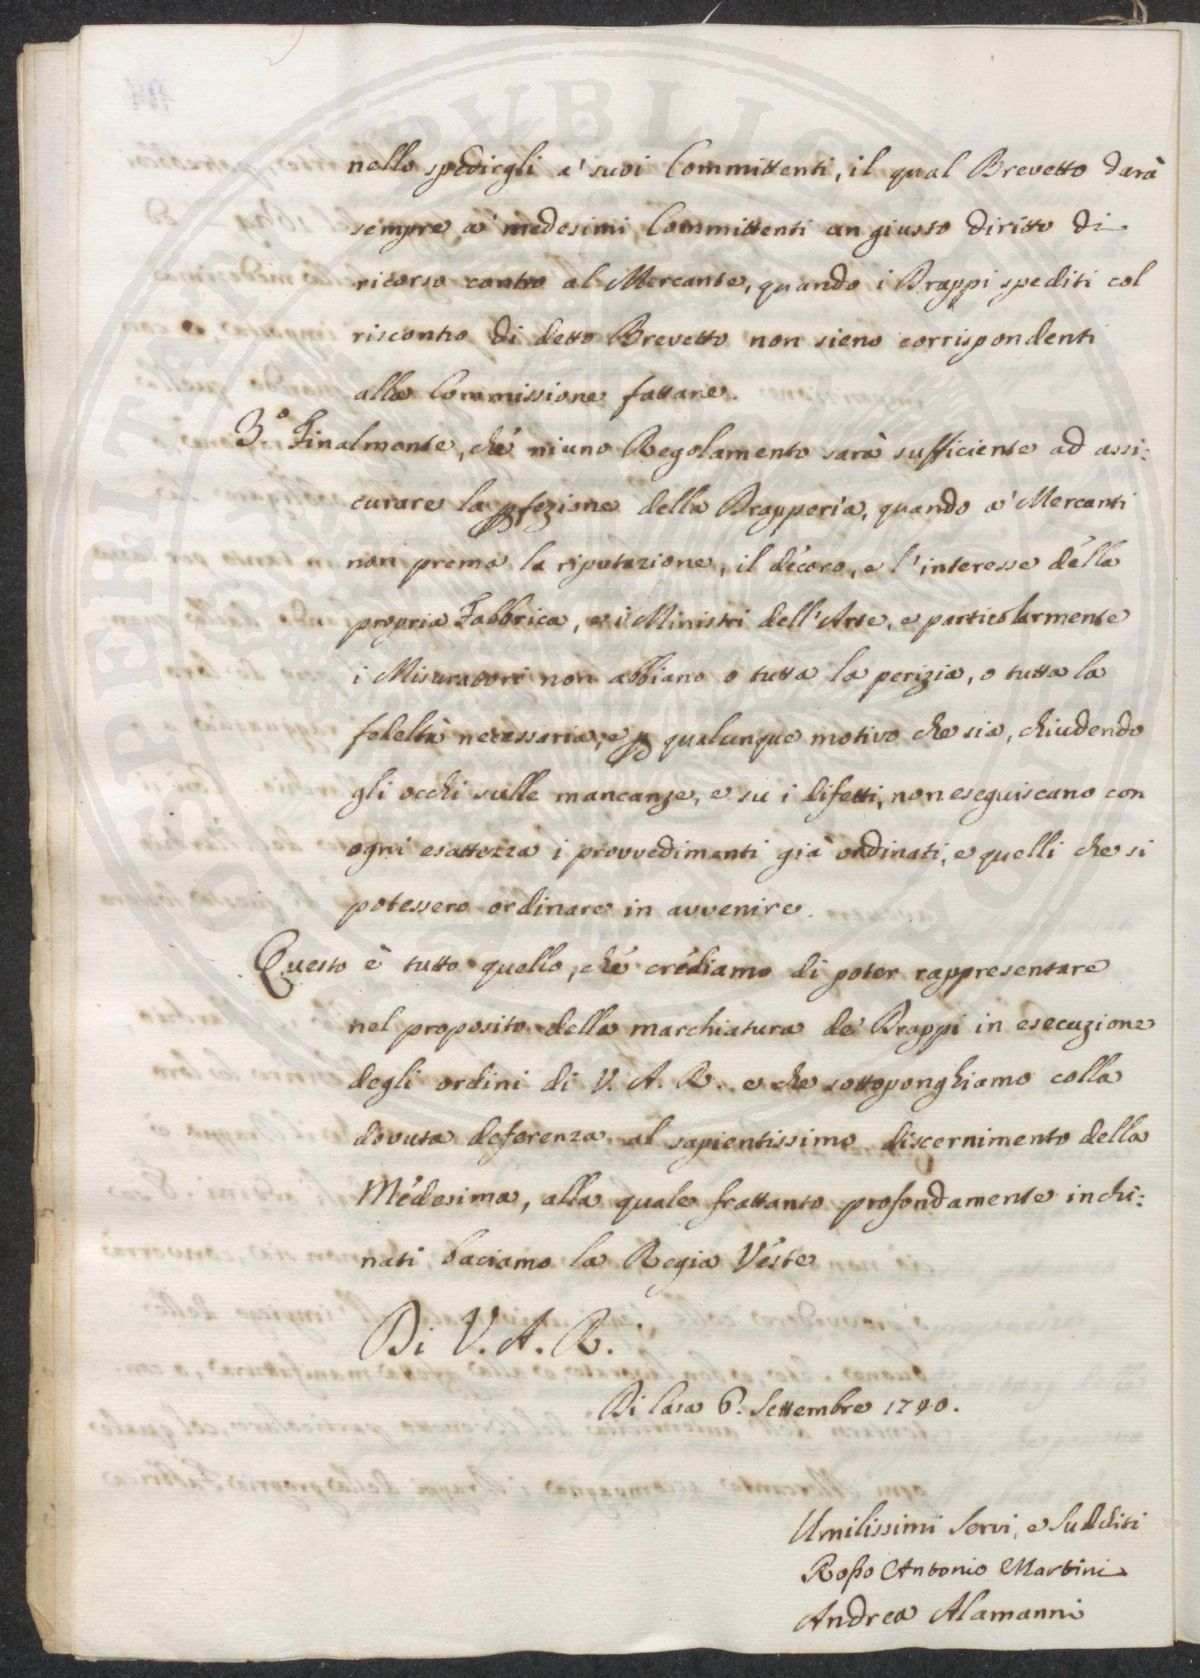 nello spedirgli a' suoi Committenti, il qual Brevetto darà
sempre a' medesimi Committenti un giusto diritto di
ricorso contro al Mercante, quando i Drappi spediti col
riscontro di detto Brevetto non sieno corrispondenti
alla Commissione fattane.
3.º Finalmente, che niuno Regolamento sarà sufficiente ad assi:
curare la pfezione della Drapperia, quando a' Mercanti
non prema la riputazione, il decoro, e l'interesse della
propria Fabbrica, e i Ministri dell'Arte, e particolarmente
i Misuratori non abbiano o tutta la perizia, o tutta la
fedeltà necessaria, e p qualunque motivo che sia, chiudendo
gli occhi sulle mancanze, e su i difetti, non eseguiscano con
ogni esattezza i provvedimenti già ordinati, e quelli che si
potessero ordinare in avvenire.
Questo è tutto quello, che crediamo di poter rappresentare
nel proposito della marchiatura de' Drappi in esecuzione
degli ordini di V. A. R. e che sottoponghiamo colla
dovuta deferenza al sapientissimo discernimento della
Medesima, alla quale frattanto profondamente inchi:
nati baciamo la Regia Veste
Di V. A. R.
Di Casa 6. Settembre 1740.
Umilissimi Servi, e Sudditi
Rosso Antonio Martini
Andrea Alamanni